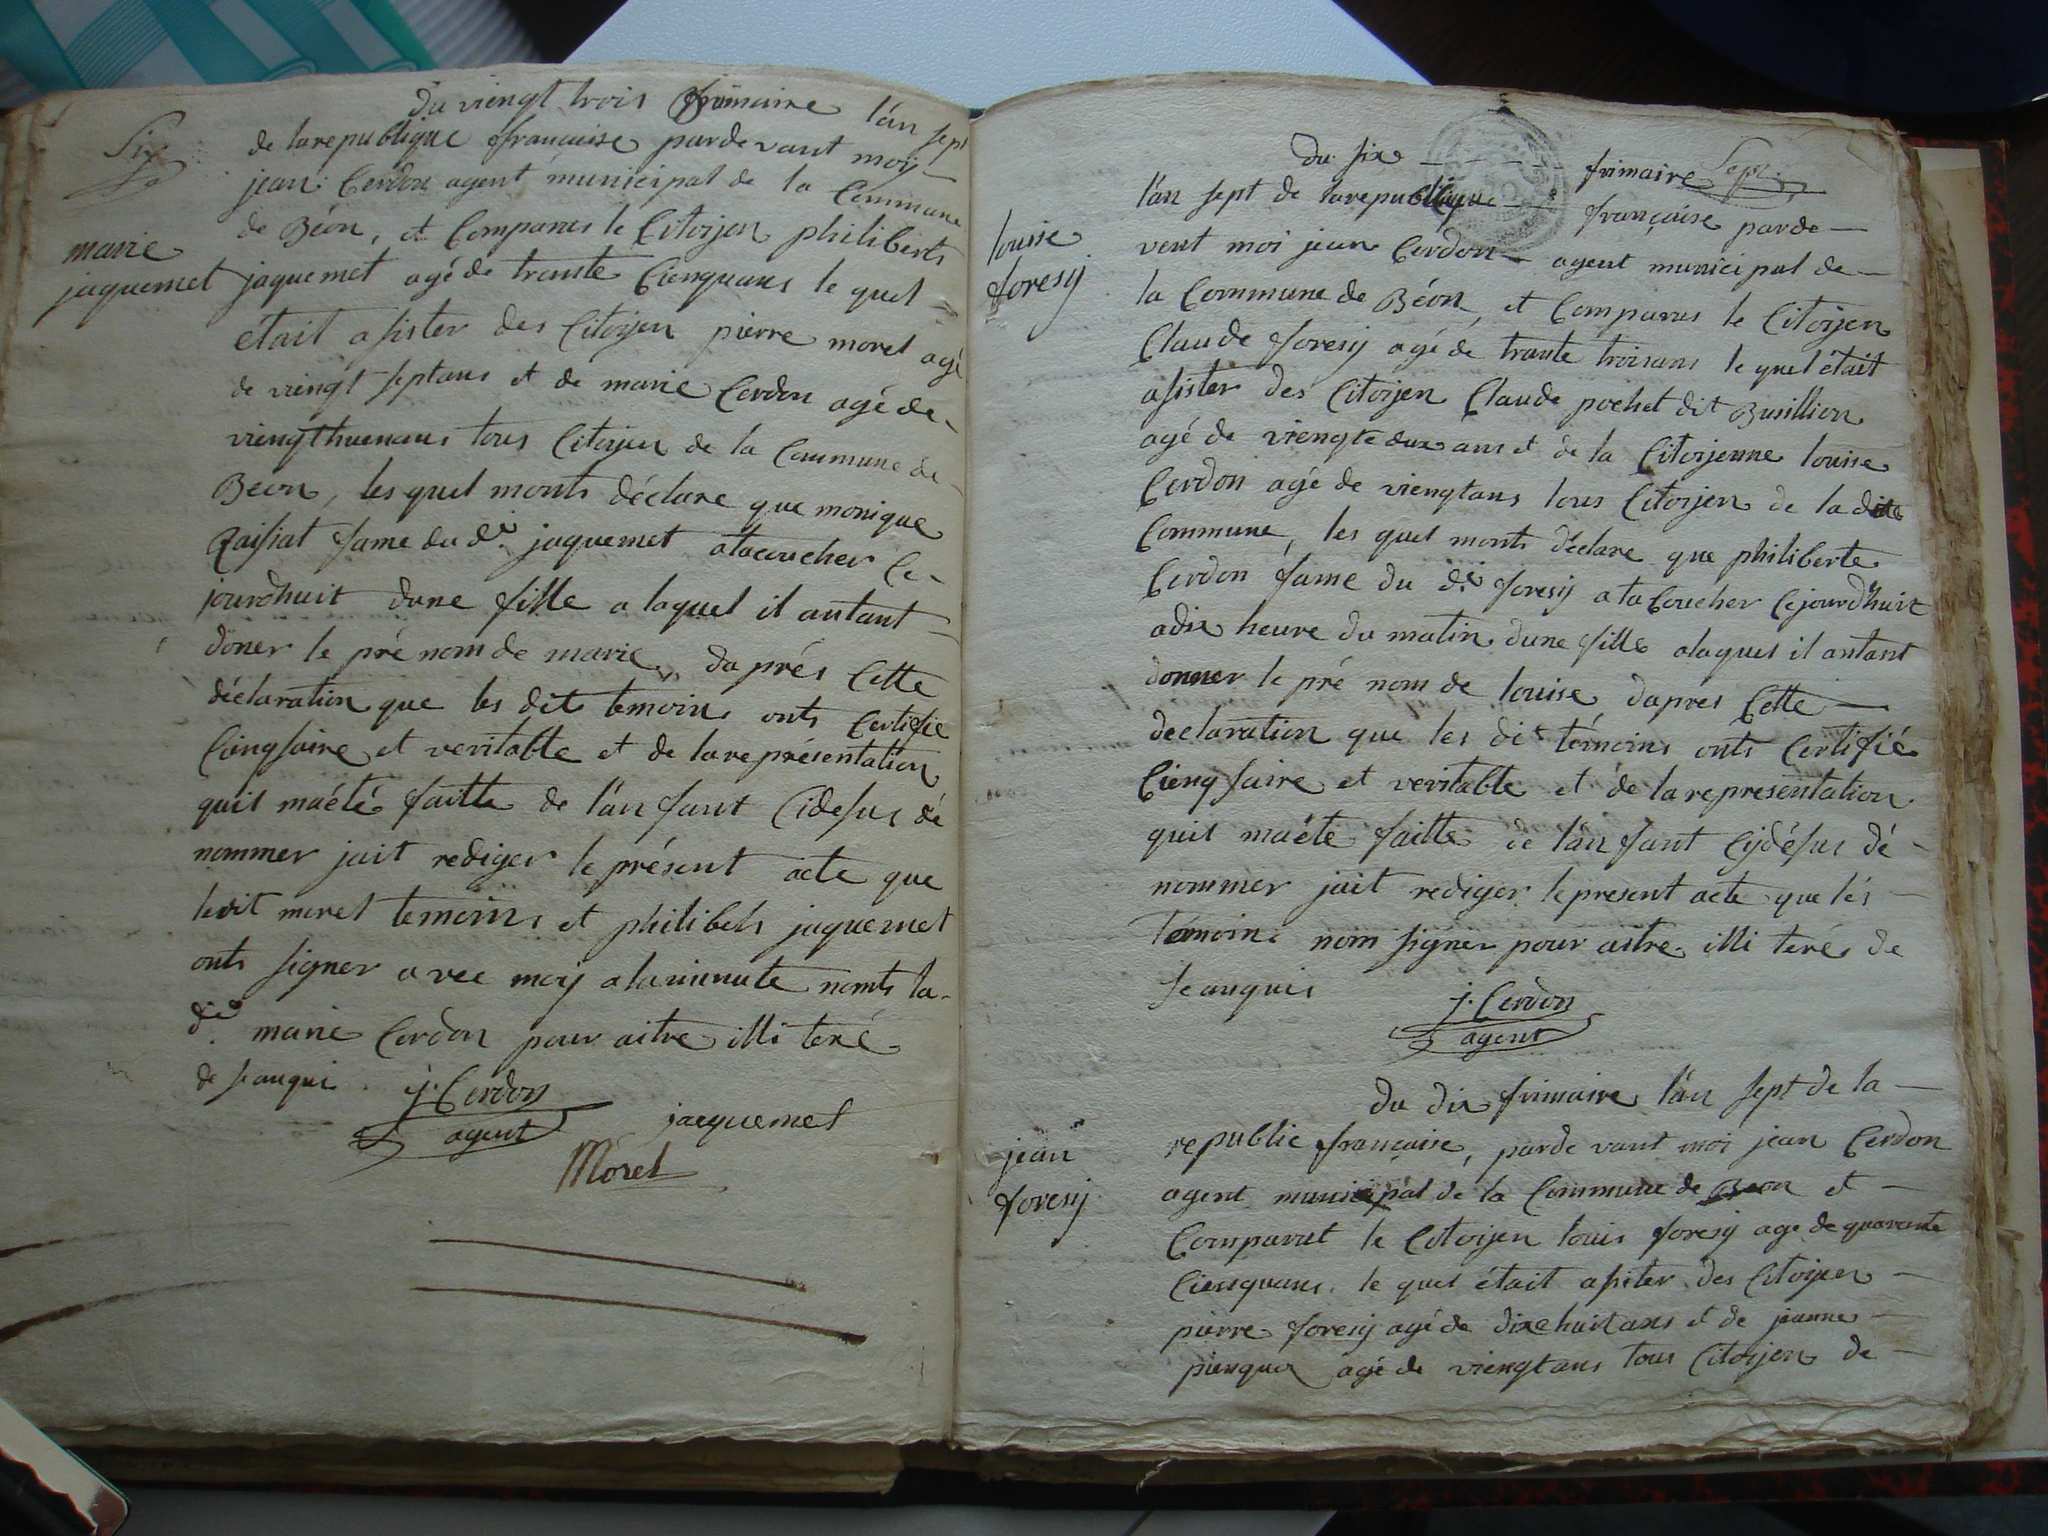 Six
du viengt trois frimaire l'an sept
de larepublique francaise pardevant moy
jean Cerdon agent municipal de la Commune
de Béon, et Comparus le Citoijen philiberts
marie
jaquemet
jaquemet agé de trante Cienquans le quel
était asister des Citoijen pierre morel agé
de viengt septans et de marie Cerdon agé de
viengthuenans tous Citoijen de la Commune de
Beon, les quel monts déclare que monique
Raisiat fame du d.e jaquemet atacoucher Ce
jourdhuit dune fille a laquel il antant
doner le pré nom de marie, daprés Cette
déclaration que les dit temoins onts Certifie
Cingsaire et veritable et de lareprésentation
quil maété faitte de l'an fant Cidesus dé
nommer jait rediger le présent acte que
ledit morel temoins et philibels jaquemet
onts signer avec moij a laminute nomts la
d.e marie Cerdon pour aitre illi teré
de seanqui
j. Cerdon
agent
jacquemet
Morel
Sept
du six frimaire
l'an sept de larepublique française parde
vent moi jean Cerdon agent municipal de
louise
foresij
la Commune de Béon, et Comparus le Citoijen
Claude foresij agé de trante troisans le quel était
asister des Citoijen Claude pochet dit Busillion
agé de viengte deux ans et de la Citoijenne louise
Cerdon agé de viengtans tous Citoijen de ladite
Commune, les quel monts déclare que philiberte
Cerdon fame du d.e foresij a ta Coucher Cejourdhuit
adix heure du matin dune fille alaquel il antant
donner le pré nom de louise dapres Cette
declaration que les dit témoins onts Certifié
Cienqsaire et veritable et de larepresentation
quil maéte faitte de l'an fant Cijdésus dé
nommer jait rediger le present acte que lés
Temoins nom signer pour aitre illi terés de
seanquis
j. Cerdon
agent
du dix frimaire l'an sept de la
jean
foresij
republic française, parde vant moi jean Cerdon
agent municipal de la Commune de Beon et
Comparut le Citoijen louis foresij age de quarente
Ciensquans le quel était asiter des Citoijen
pierre foresij agé de dixehuitans et de jeanne
agé de viengtans tous Citoijen de